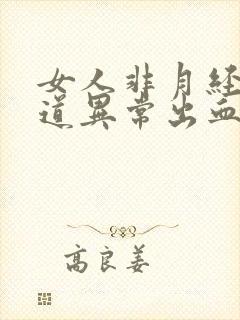 女人非月经
道異常出血
高良姜